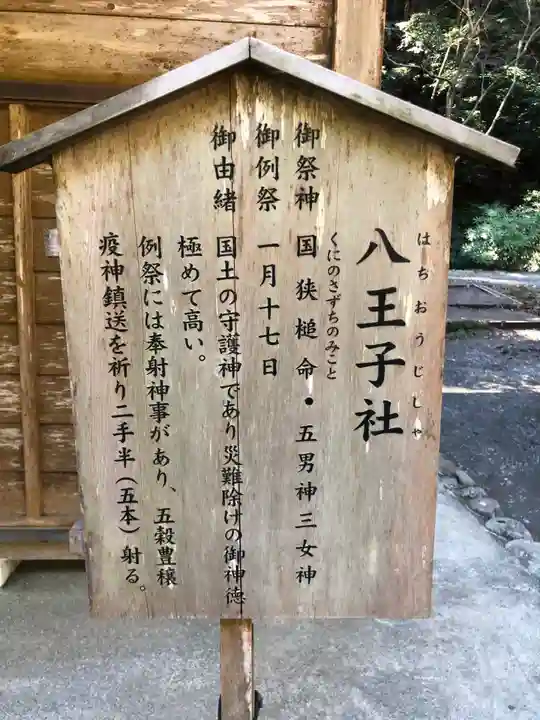 はちおうじしゃ
八王子社
くにのさずちのみこと
御祭神 国狭槌命・五男神三女神
御例祭 一月十七日
御由緒 国土の守護神であり災難除けの御神徳
極めて高い。
例祭には奉射神事があり、五穀豊穣
疫神鎮送を祈り二手半（五本）射る。